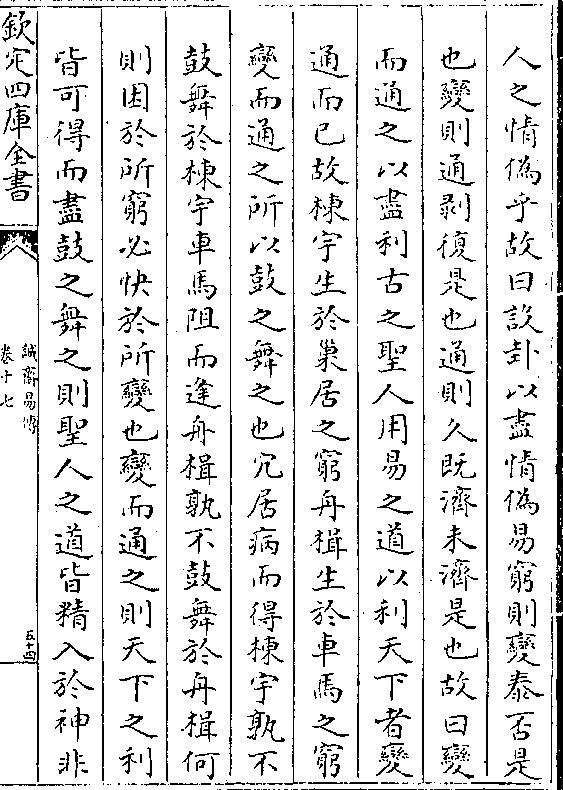 人之情偽乎故曰設卦以盡情偽易窮則變泰否是
也變則通剥復是也通則久既濟未濟是也故曰變
而通之以盡利古之聖人用易之道以利天下者變
通而已故棟宇生於巢居之窮舟楫生於車馬之窮
變而通之所以鼓之舞之也穴居病而得棟宇孰不
鼓舞於棟宇車馬阻而逢舟楫孰不鼓舞於舟楫何
則困於所窮必快於所變也變而通之則天下之利
皆可得而盡鼓之舞之則聖人之道皆精入於神非
欽定四庫全書
誠齋易傳
卷十七
五十四